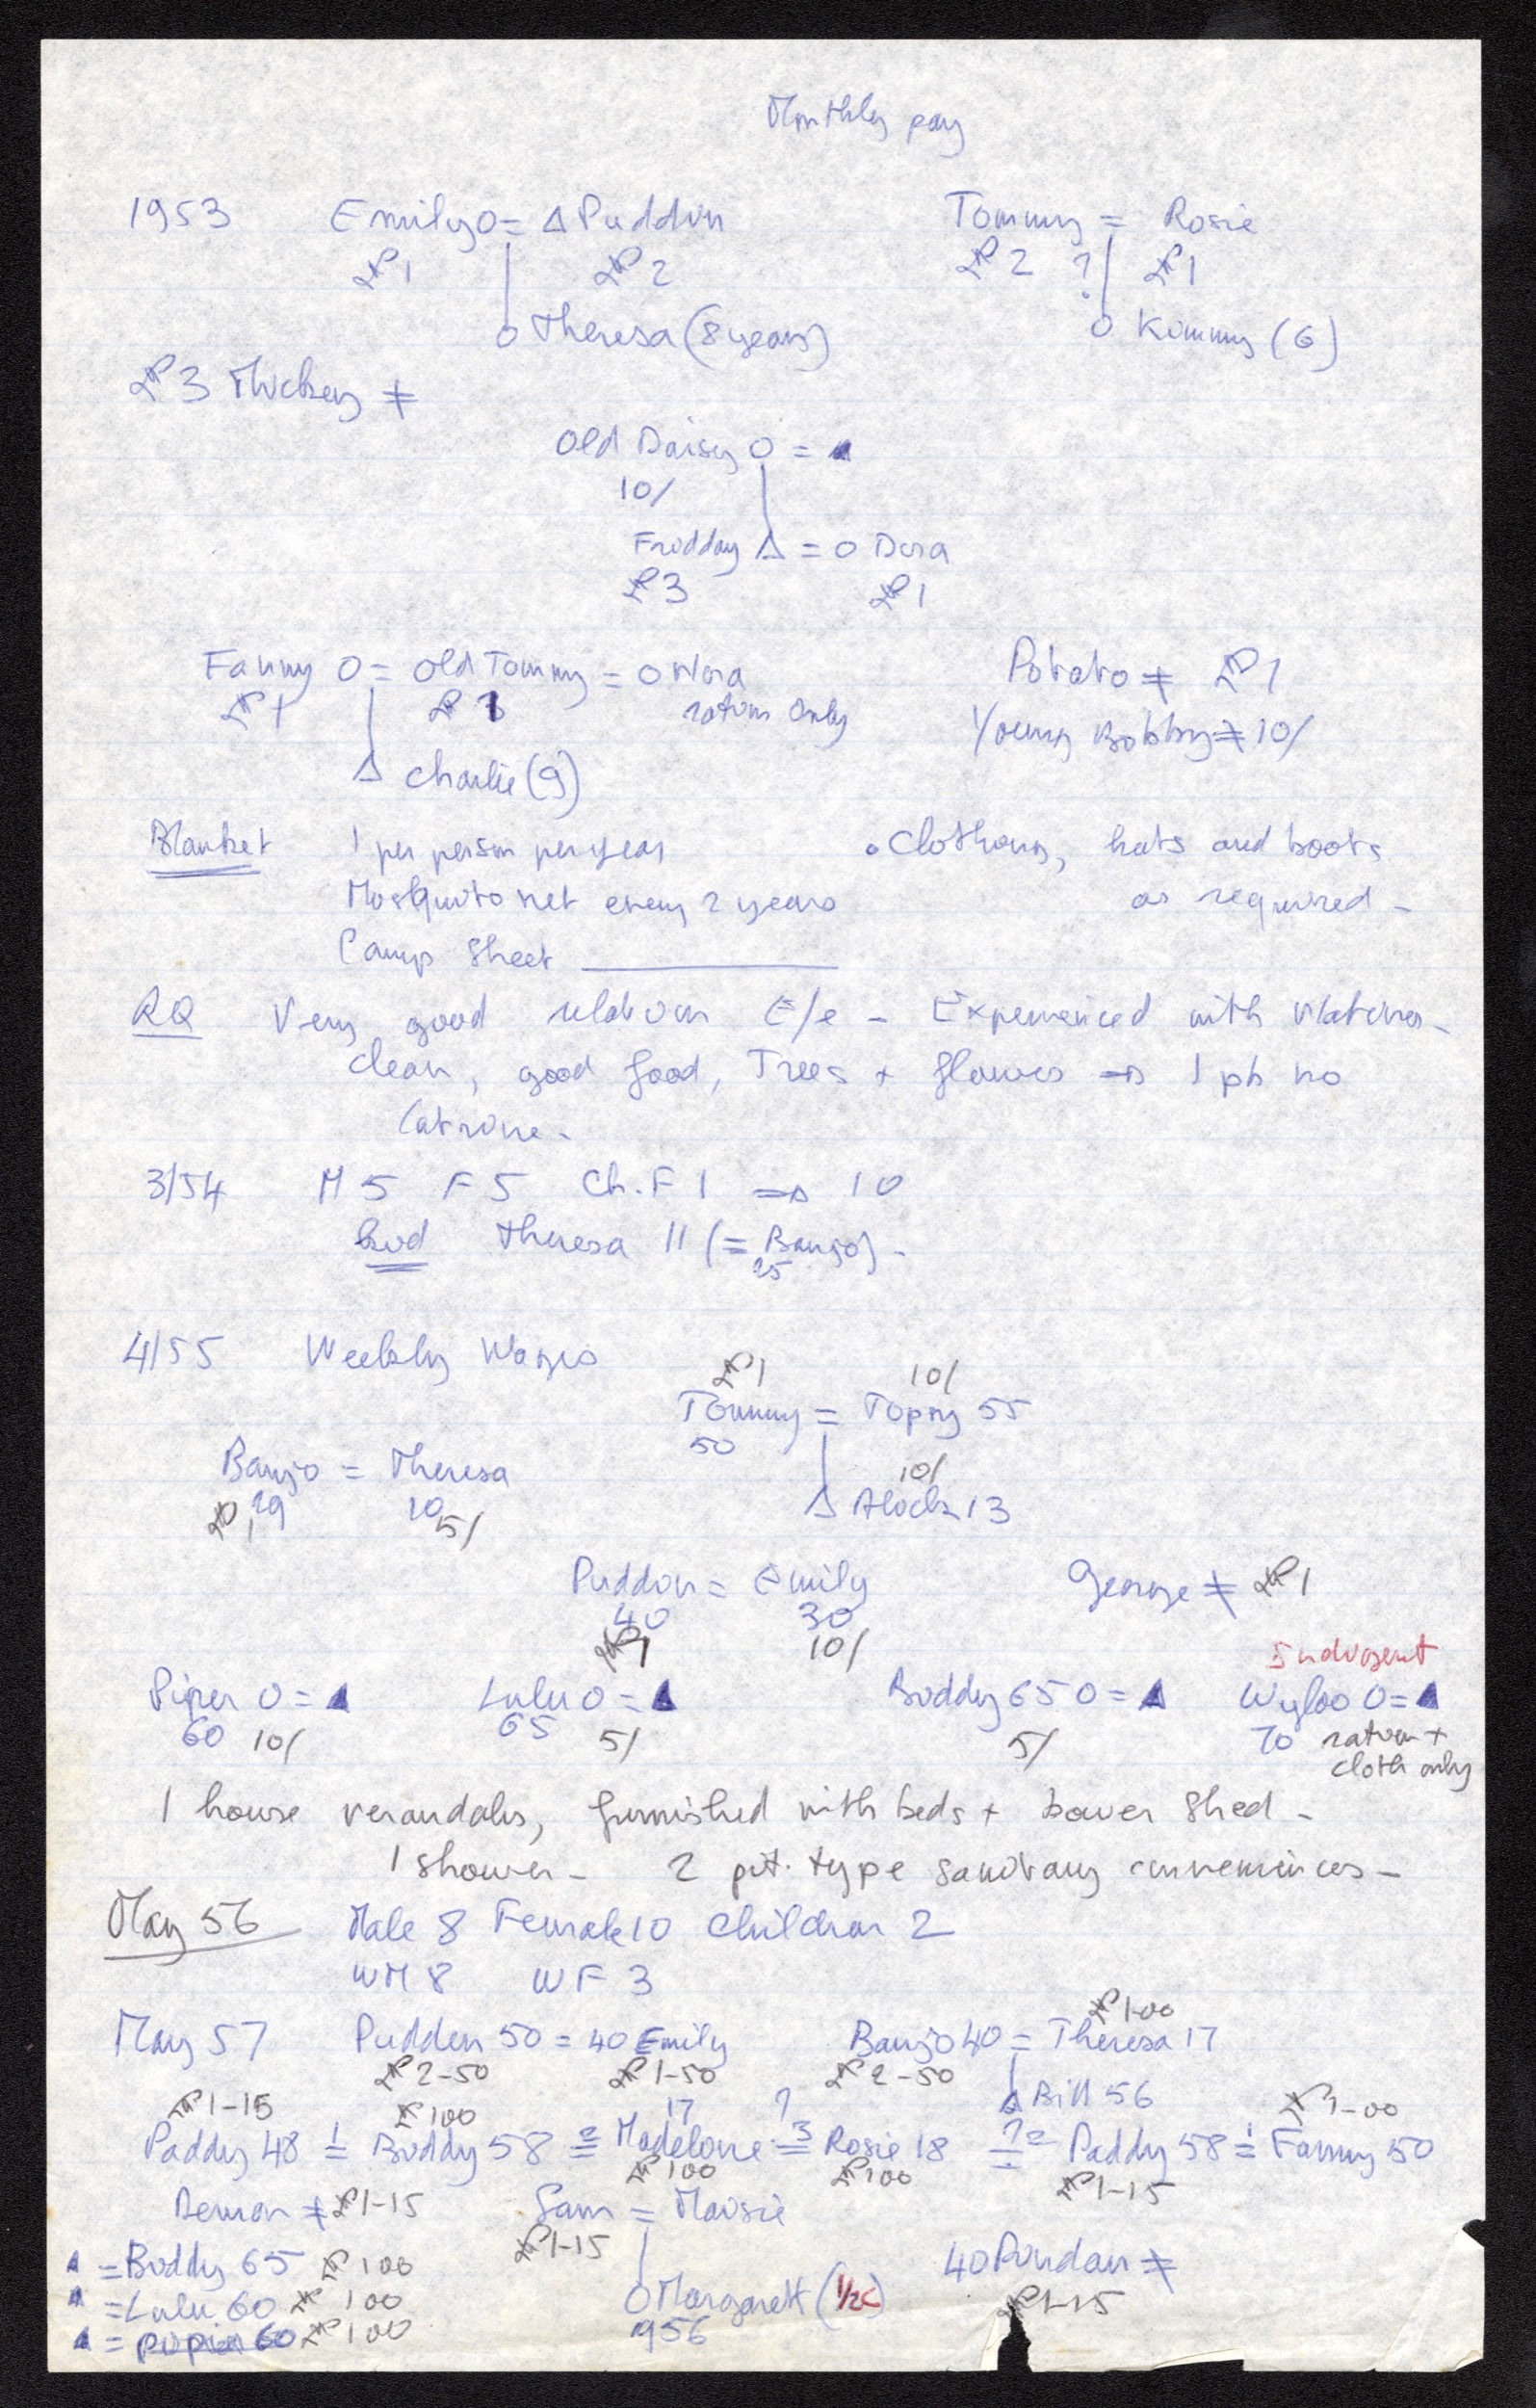 Monthly pay
1953 Emily O = Δ Puddin Tommy = Rosie
£P 1 £P 2 £P 2 ? £P 1
O Theresa (8 years) O Kimmy (6)
£P 3 Mickey ≠
Old Daisy O = ▲
10/
Fridday Δ = O Dora
£P 3 £P 1
Fanny O = Old Tommy = O Nora Potato ≠ £P 1
£P 1 £P ration only Young Bobby ≠ 10/
Δ Charlie (9)
Blanket 1 per person per year • Clothing, hats and boots
Mosquito net every 2 years as required -
Camp sheet ————
RQ Very good relation E/e - Experienced with natives -
clean, good food, Trees + flowers ⇒ 1 pb no
latrine -
3/54 M 5 F 5 Ch. F 1 ⇒ 10
Theresa 11 (= Banjo) -
4/55 Weekly Wages
£P 1 10/
Tommy = Topsy 55
50
Banjo = Theresa 10/
£P 1 29 10 5/ Δ 13
Puddin = Emily George ≠ £P 1
40 30
£P 1 10/
Indigent
Piper O = ▲ Lulu O = ▲ Biddy 65 O = ▲ Wyloo O = ▲
60 10/ 65 5/ 5/ 70 ration +
cloth only
1 house verandahs, furnished with beds + bower shed -
1 shower - 2 pit. type sanitary conveniences -
May 56 Male 8 Female 10 Children 2
WM 8 WF 3
£P 1-00
May 57 Pudden 50 = 40 Emily Banjo 40 = Theresa 17
£P 2-50 £P 1-50 £P 2-50
£P 1-15 £P 100 17 ? Δ Bill 56 £P 1-00
Paddy 48 1= Biddy 58 2= Madelone 3= Rosie 18 ?2= Paddy 58 1= Fanny 50
£P 100 £P 100 £P 1-15
Demon ≠ £P 1-15 Sam = Maisie
£P 1-15
▲ = Biddy 65 £P 100 40 Pindan ≠
▲ = Lulu 60 £P 100 O Margarett (1/2c) £P 1-15
▲ = pipier 60 £P 100 956